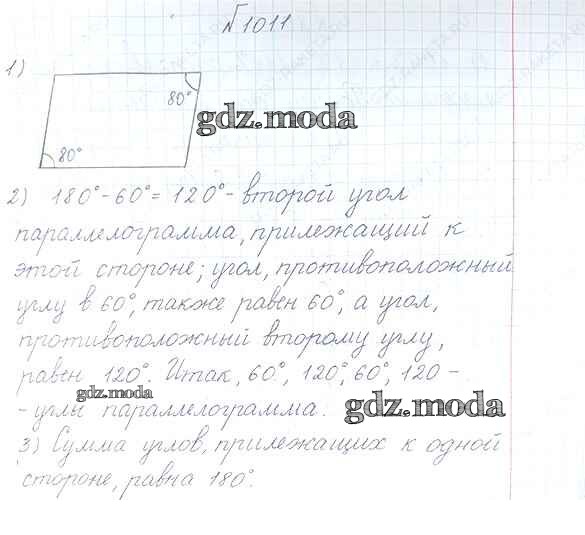 №1011
1)
80°
gdz.moda
80°
2) 180°-60°=120°- второй угол
параллелограмма, прилежащий к
этой стороне; угол, противоположный
углу в 60°, также равен 60°, а угол,
противоположный второму углу,
равен 120°. Итак, 60°, 120°, 60°, 120 -
gdz.moda
- углы параллелограмма.
gdz.moda
3) Сумма углов, прилежащих к одной
стороне, равна 180°.